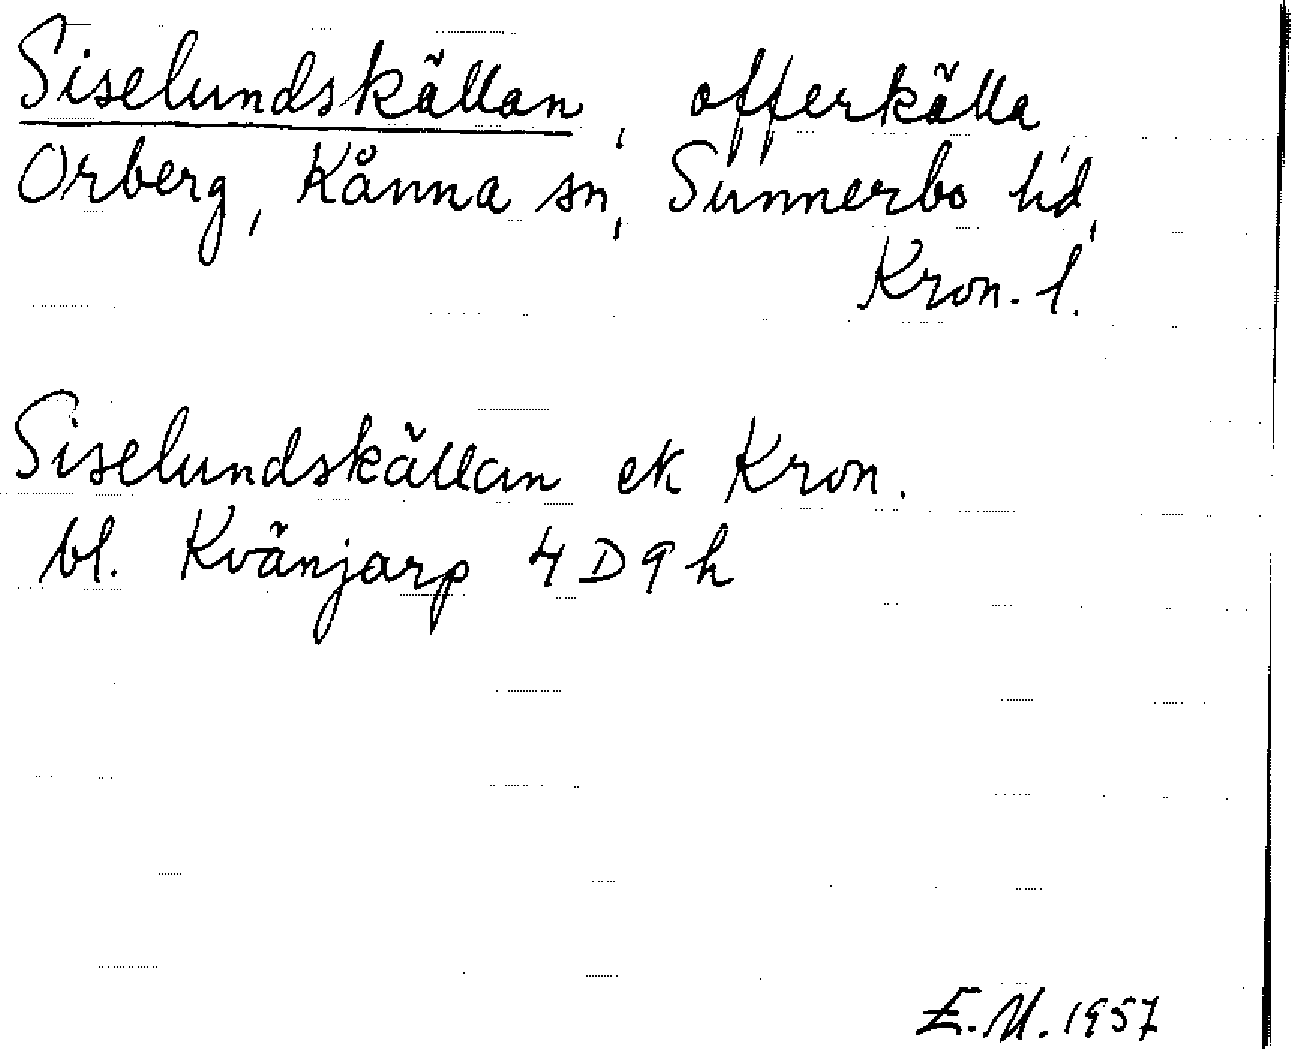 Siselundskällan, offerkälla
Orberg, Kånna sn, Sunnerbo hd,
Kron. l.
Siselundskällan ek Kron.
bl. Kvänjarp 4 D 9 h
E.M. 1957